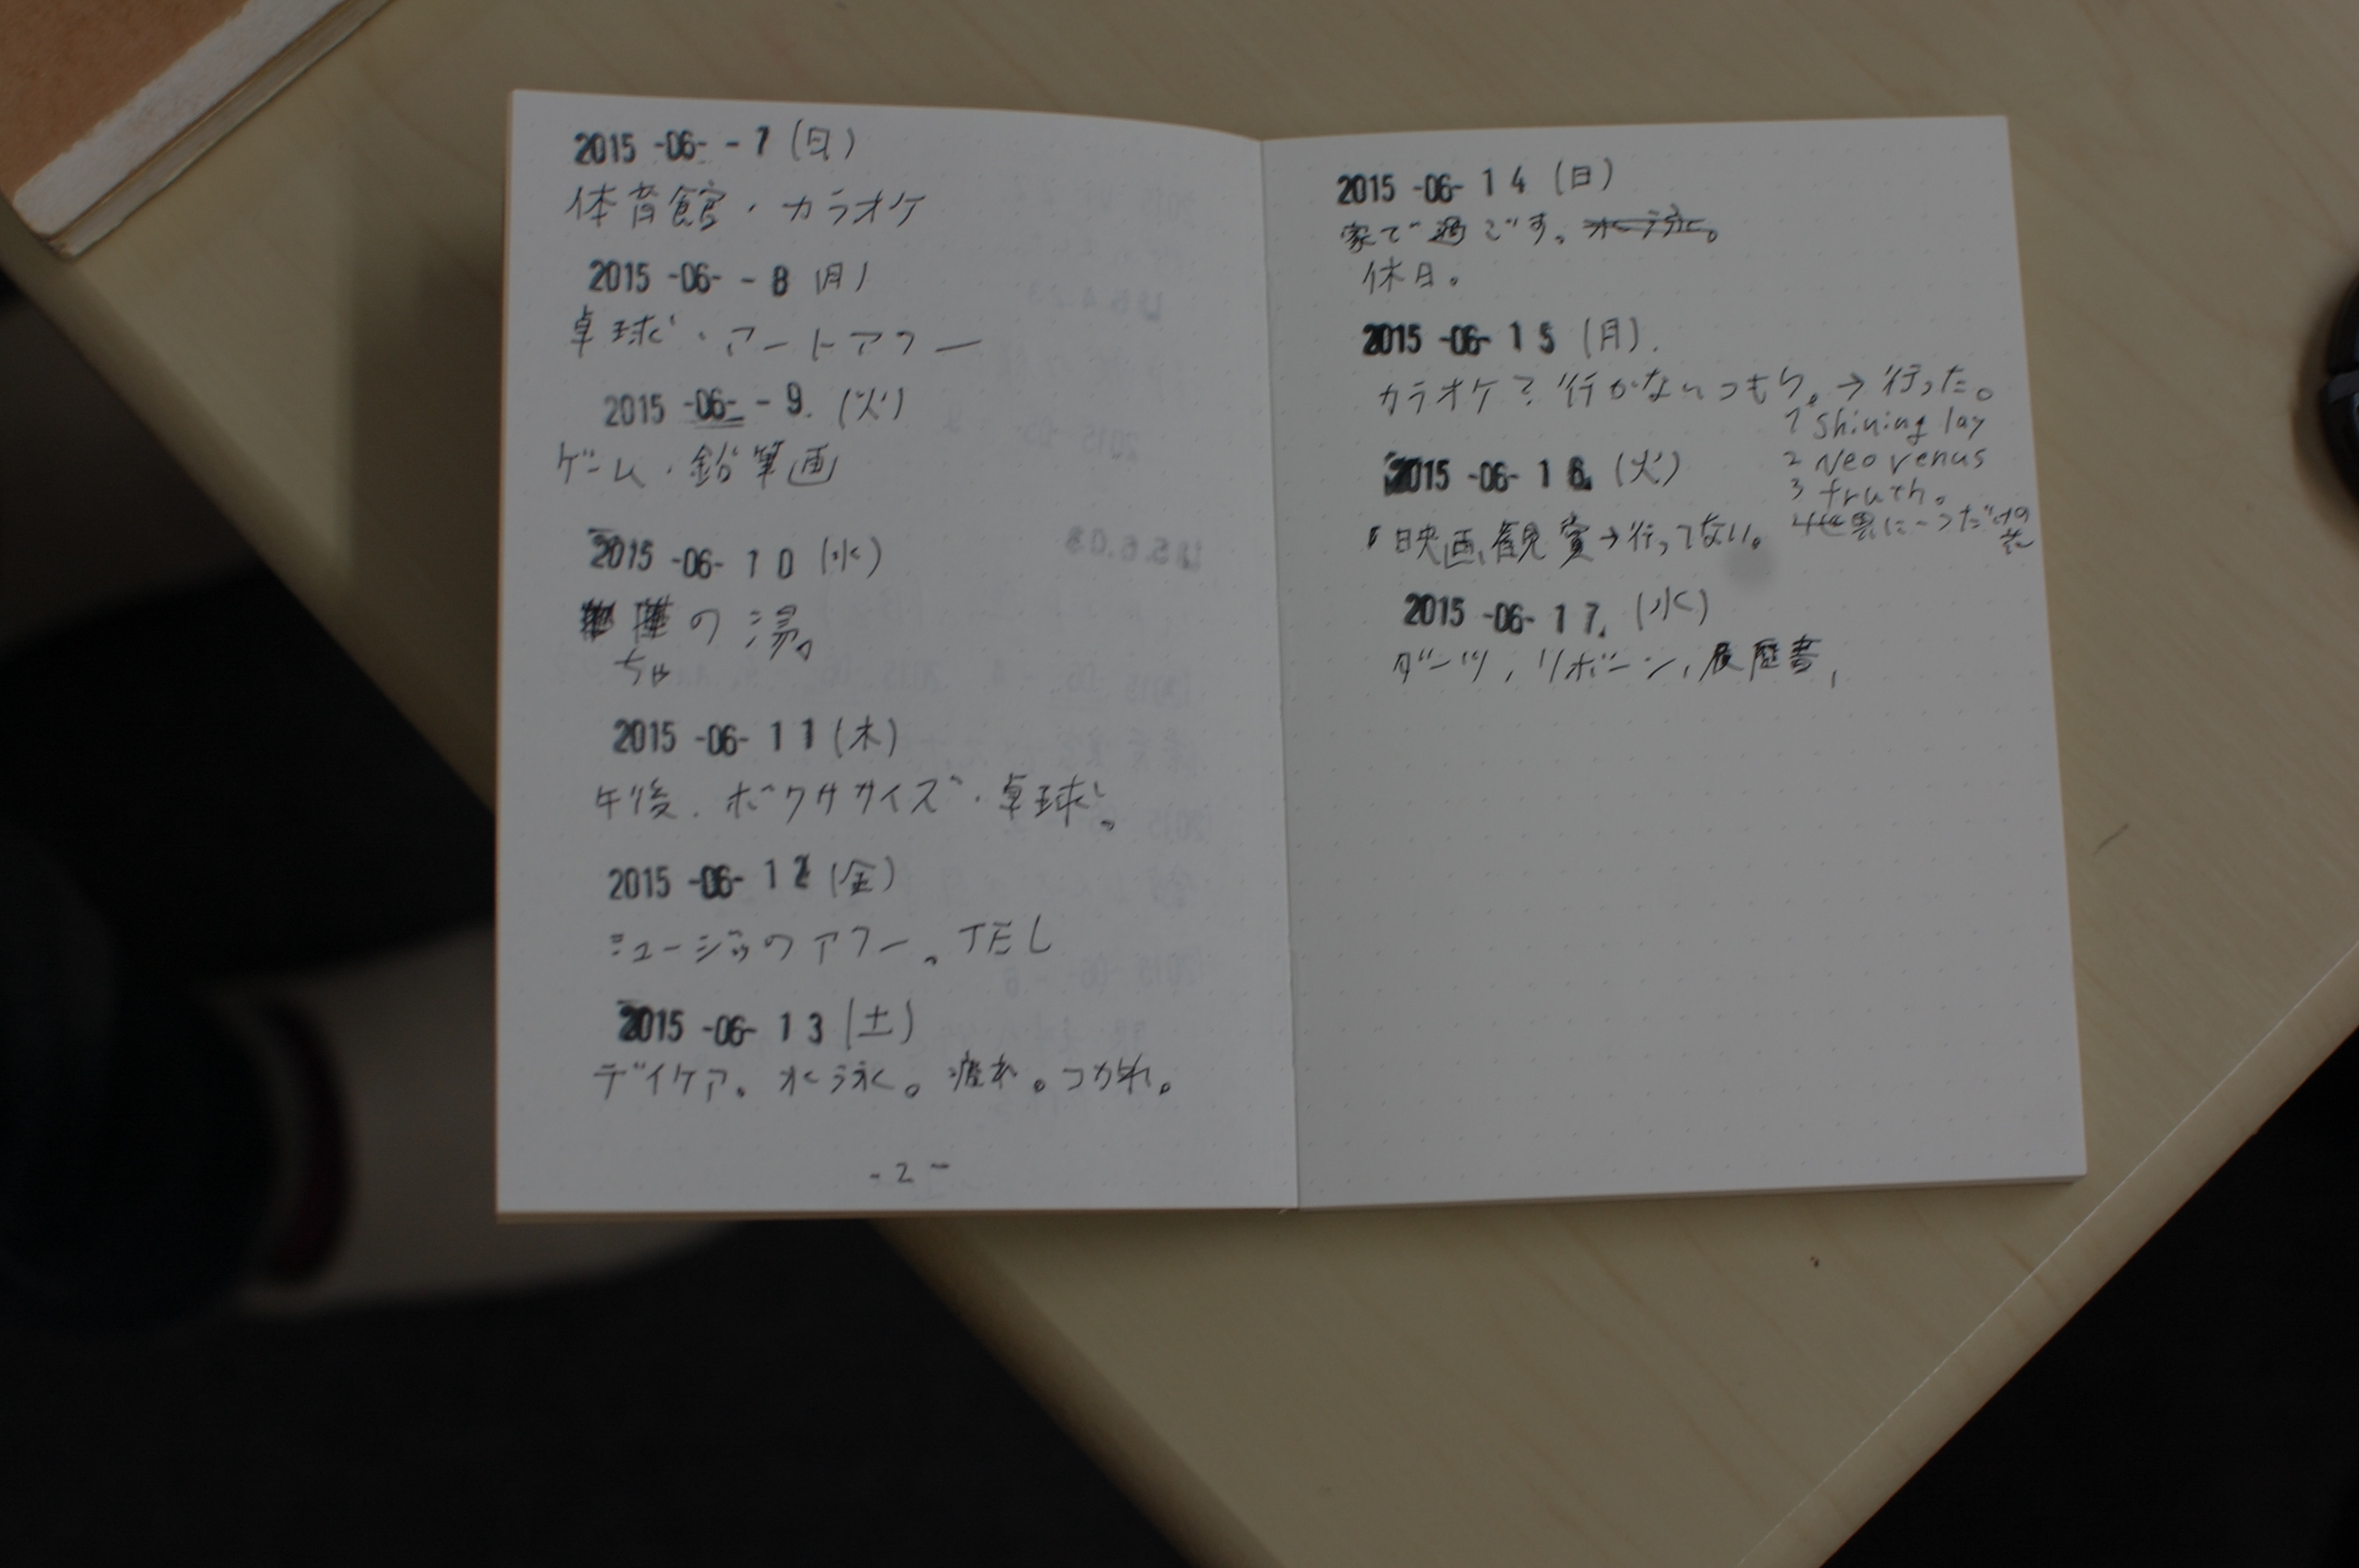 2015 -06- - 7 (日)
体育館・カラオケ
2015 -06- - 8 (月)
卓球・アートアフター
2015 -06- - 9. (火)
ゲーム・鉛筆画
2015 -06- 1 0 (水)
の湯。
2015 -06- 1 1 (木)
午後.ボクササイズ・卓球。
2015 -06- 1 2 (金)
ミュージックアフター。TEL
2015 -06- 1 3 (土)
デイケア。水泳。疲れ。つかれ。
- 2 -
2015 -06- 1 4 (日)
家で過ごす。水泳。
休日。
2015 -06- 1 5 (月).
カラオケ?行かないつもり。→行った。
1 shining lay
2 Neo venus
3 truth。
4世界に一つだけの
花
2015 -06- 1 6. (火)
映画観賞→行ってない。
2015 -06- 1 7. (水)
ダーツ, リボーン, 履歴書,